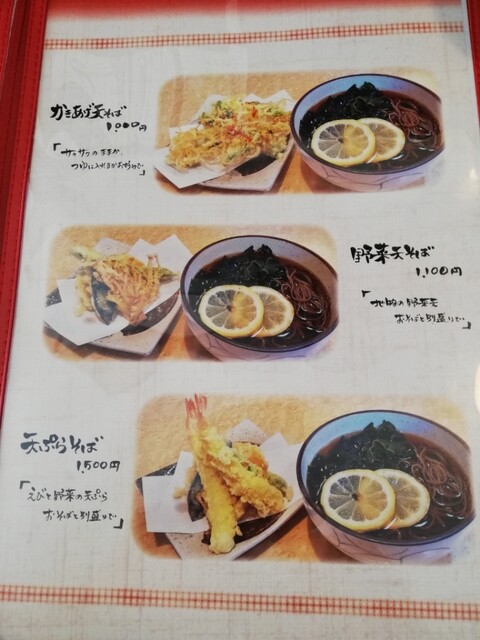 かきあげ天そば
1,000円
「サクサクのままか、
つゆに入れるかお好みで」
野菜天そば
1,100円
「地物の野菜天
おそばと別盛りで」
天ぷらそば
1,500円
「えびと野菜の天ぷら
おそばと別盛りで」